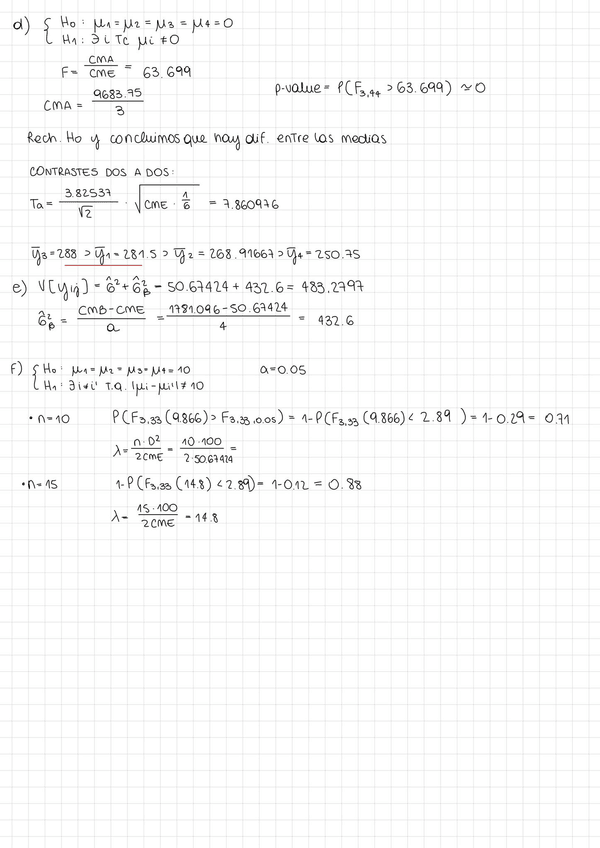 d) { H₀: μ₁ = μ₂ = μ₃ = μ₄ = 0
H₁: ∃ i Tc μi ≠ 0
F = CMA/CME = 63.699
p-value = P(F₃,₄₄ > 63.699) ≃ 0
CMA = 9683.75/3
Rech. H₀ y concluimos que hay dif. entre las medias
CONTRASTES DOS A DOS:
Ta = 3.82537/√2 · √(CME · 1/6) = 7.860976
ȳ₃ = 288 > ȳ₁ = 281.5 > ȳ₂ = 268.91667 > ȳ₄ = 250.75
e) V[yij] = σ̂² + σ̂²β - 50.67424 + 432.6 = 483.2797
σ̂²β = (CMB - CME)/a = (1781.096 - 50.67424)/4 = 432.6
f) { H₀: μ₁ = μ₂ = μ₃ = μ₄ = 10 a = 0.05
H₁: ∃ i ≠ i' T.q. |μi - μi'| ≠ 10
• n = 10 P(F₃,₃₃(9.866) > F₃,₃₃,₀.₀₅) = 1 - P(F₃,₃₃(9.866) < 2.89) = 1 - 0.29 = 0.71
λ = n·D²/2CME = 10·100/2·50.67424 =
• n = 15 1 - P(F₃,₃₃(14.8) < 2.89) = 1 - 0.12 = 0.88
λ = 15·100/2CME = 14.8